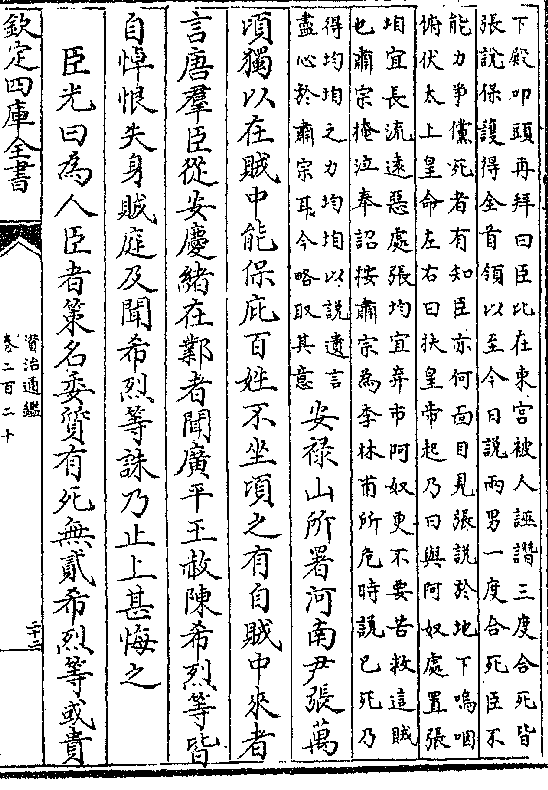 下殿叩頭再拜曰臣比在東宮被人誣譖三度合死皆
張說保護得全首領以至今日說兩男一度合死臣不
能力爭儻死者有知臣亦何面目見張說於地下嗚咽
俯伏太上皇命左右曰扶皇帝起乃曰與阿奴處置張
垍宜長流遠惡處張均宜弃市阿奴更不要苦救這賊
也肅宗掩泣奉詔按肅宗為李林甫所危時說已死乃
得均垍之力均垍以說遺言
盡心於肅宗耳今略取其意
安禄山所署河南尹張萬
頃獨以在賊中能保庇百姓不坐頃之有自賊中來者
言唐羣臣從安慶緒在鄴者聞廣平王赦陳希烈等皆
自悼恨失身賊庭及聞希烈等誅乃止上甚悔之
臣光曰為人臣者策名委質有死無貳希烈等或貴
欽定四庫全書
資治通鑑
卷二百二十
二十二